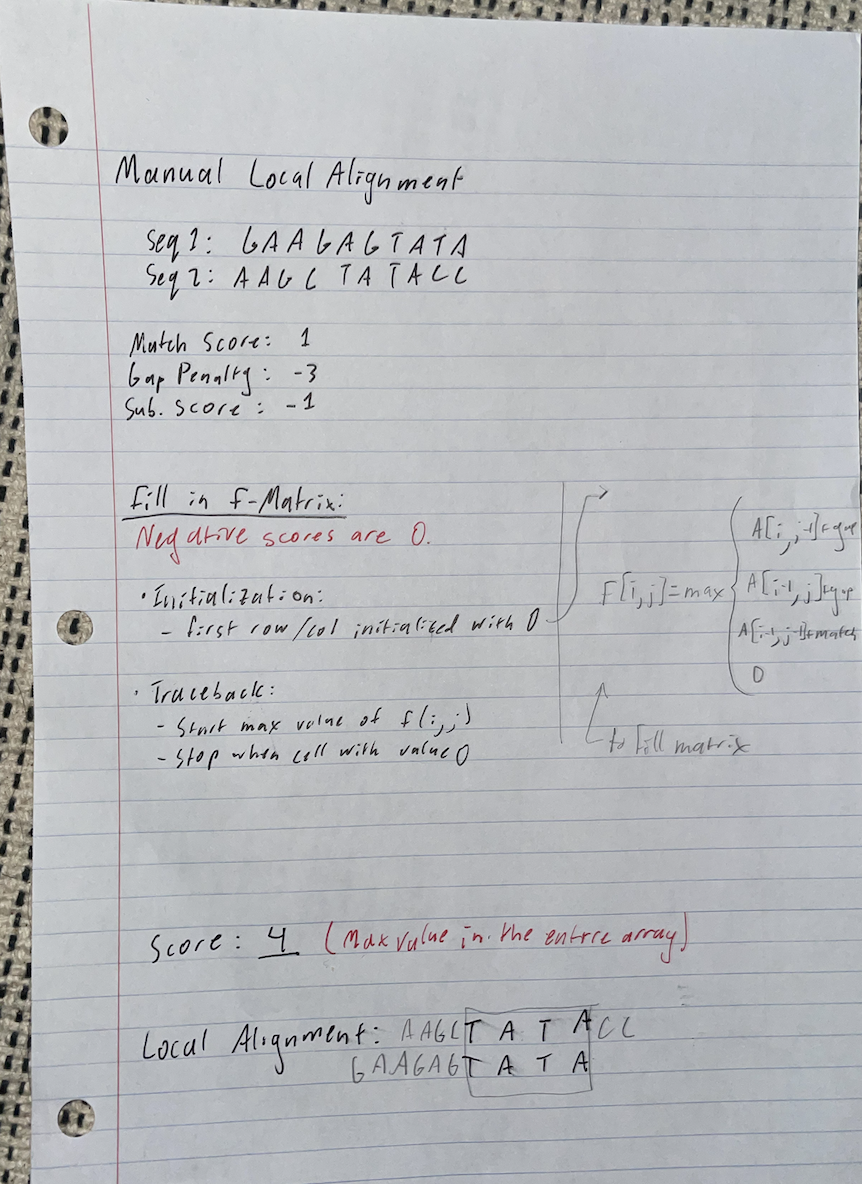 Manual Local Alignment
Seq 1: GAAGAGTATA
Seq 2: AAGC TATACC
Match Score: 1
Gap Penalty: -3
Sub. Score: -1
Fill in F-Matrix:
Negative scores are 0.
• Initialization:
- first row/col initialized with 0
• Traceback:
- Start max value of f(i,j)
- Stop when cell with value 0
F[i,j] = max
A[i, j-1]+gap
A[i-1, j]+gap
A[i-1, j-1]+match
0
to fill matrix
Score: 4 (Max value in the entire array)
Local Alignment: AAGC T A T A CC
GAAGAG T A T A